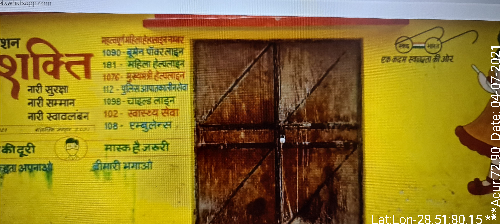 शक्ति
नारी सुरक्षा
नारी सम्मान
नारी स्वावलंबन
महत्वपूर्ण महिला हेल्पलाइन नम्बर
1090 - वूमेन पॉवर लाइन
181 - महिला हेल्पलाइन
1076 - मुख्यमंत्री हेल्पलाइन
112 - पुलिस आपातकालीन सेवा
1098 - चाइल्ड लाइन
102 - स्वास्थ्य सेवा
108 - एम्बुलेन्स
की दूरी
मास्क है जरूरी
अपनाओ
बीमारी भगाओ
स्वच्छ भारत
एक कदम स्वच्छता की ओर
Lat Lon-28 51:80.15
Date: 04-07-2021